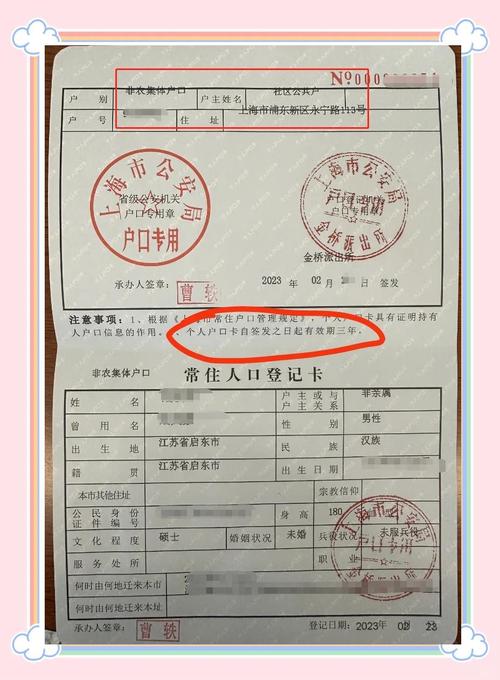 No000
户 别 非农集体户口 户主姓名 社区公共户
户 号 住 址 上海市浦东新区永宁路113号
上海市公安局
省级公安机关
户口专用章
户口专用
上海市公安局
户口登记机关
户口专用章
金桥派出所
金桥派出所
承办人签章: 曹轶 2023 年 02 月 签发
注意事项:1、根据《上海市常住户口管理规定》,个人户口卡具有证明持有
人户口信息的作用。 个人户口卡自签发之日起有效期三年。
非农集体户口 常住人口登记卡
姓 名 户主或与户主关系 非亲属
曾用名 性 别 男性
出生地 江苏省启东市 民 族 汉族
籍 贯 江苏省启东市 出生日期
本市其他住址 宗教信仰
公民身份证件编号 身 高 180 血 型
文化程度 硕士 婚姻状况 未婚 兵役状况 未服兵役
服务处所 职业
何时由何地迁来本市
何时由何地迁来本址
上海市公安局
户口专用
承办人签章: 曹轶 登记日期:2023 年 02 月 23